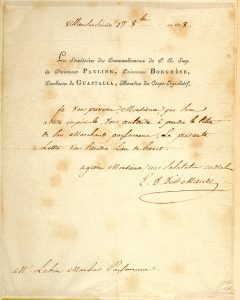 17 8bre 1808.
Les Secrétaires des Commandemens de S. A. Imp.
la Princesse PAULINE, Princesse BORGHÈSE,
Duchesse de GUASTALLA, Membre du Corps-Législatif,
Je vous préviens Monsieur que Son
altesse impériale vous autorise à prendre le titre
de Son Marchand parfumeur. La présente
Lettre vous tiendra Lieu de brevet.
agréez Monsieur mes Salutations
Mr. Lubin Marchand Parfumeur